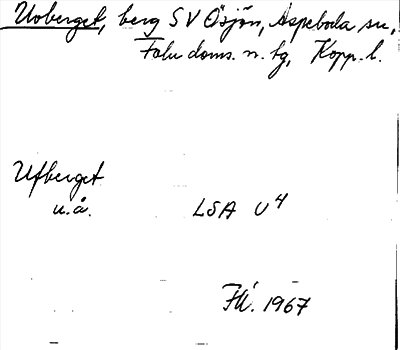 Uvberget, berg SV Ösjön, Aspeboda sn,
Falu doms. n. tg, Kopp. l.
Ufberget
u.å. LSA U4
1967